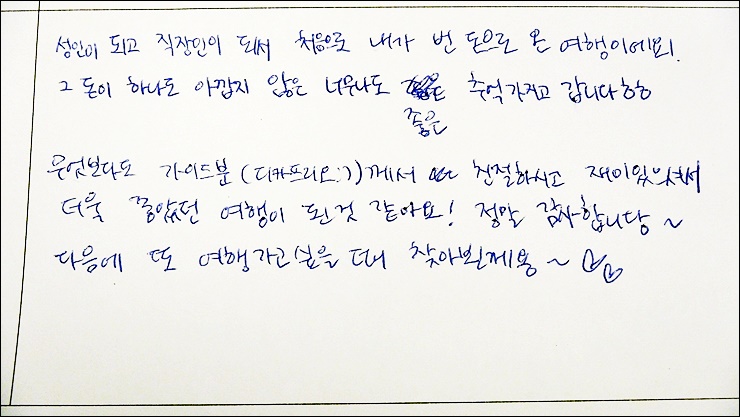 성인이 되고 직장인이 되서 처음으로 내가 번 돈으로 온 여행이에요.
그 돈이 하나도 아깝지 않은 너무나도 좋은 추억가지고 갑니다ㅎㅎ
무엇보다도 가이드분(디카프리오:))께서 친절하시고 재미있으셔서
더욱 좋았던 여행이 된것 같아요! 정말 감사합니당~
다음에 또 여행가고싶을 때 찾아뵐게용~